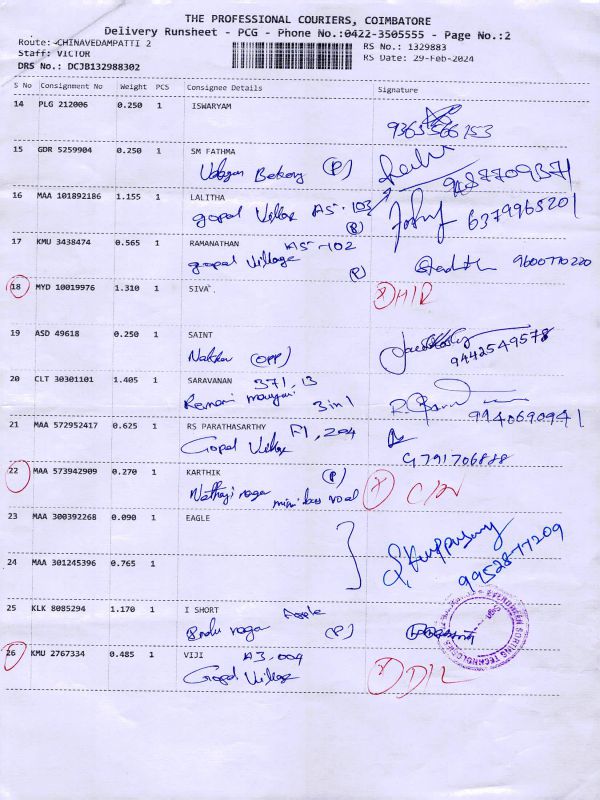 THE PROFESSIONAL COURIERS, COIMBATORE
Delivery Runsheet - PCG - Phone No.:0422-3505555 - Page No.:2
Route: CHINAVEDAMPATTI 2 RS No.: 1329883
Staff: VICTOR RS Date: 29-Feb-2024
DRS No.: DCJB132988302
S No Consignment No Weight PCS Consignee Details Signature
14 PLG 212006 0.250 1 ISWARYAM
15 GDR 5259904 0.250 1 SM FATHMA
Bakery (P) 9487709371
16 MAA 101892186 1.155 1 LALITHA
gopal Village A5-103 6379965201
(P)
17 KMU 3438474 0.565 1 RAMANATHAN A5-102
gopal Village (P) 9600770220
18 MYD 10019976 1.310 1 SIVA X
19 ASD 49618 0.250 1 SAINT
(OPP) 9442549578
20 CLT 30301101 1.405 1 SARAVANAN 371, 13
3 in 1 9940690941
21 MAA 572952417 0.625 1 RS PARATHASARTHY
Gopal Village F1, 204
22 MAA 573942909 0.270 1 KARTHIK (P) X
mini bus
23 MAA 300392268 0.090 1 EAGLE
24 MAA 301245396 0.765 1
25 KLK 8085294 1.170 1 I SHORT Apple
(P)
26 KMU 2767334 0.485 1 VIJI A3, 004
Gopal Village X D/L